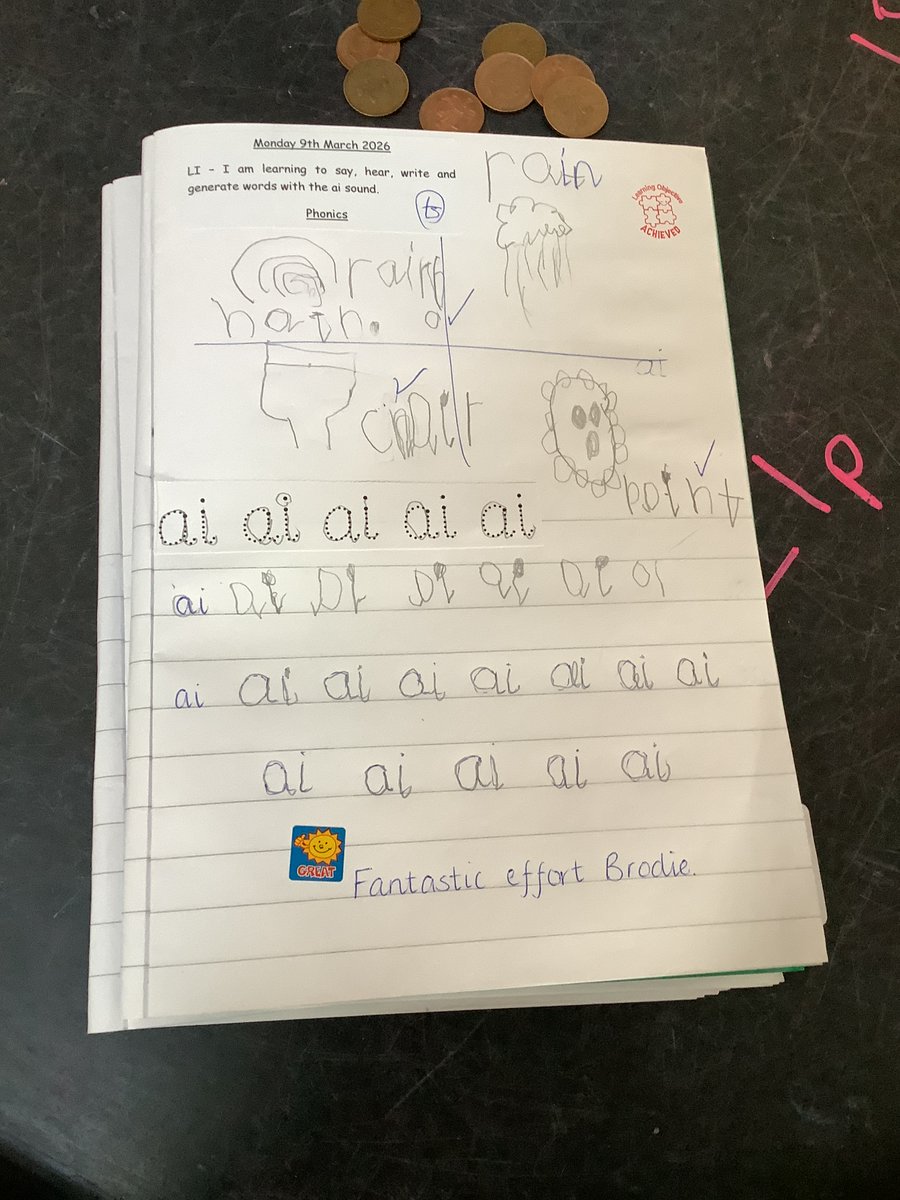 Monday 9th March 2026
LI - I am learning to say, hear, write and
generate words with the ai sound.
Phonics
ts
rain
Learning Objective
ACHIEVED
hain.
ai
chair
point
ai ai ai ai ai
ai ai
ai ai ai ai ai ai ai ai
ai ai ai ai ai
GREAT
Fantastic effort Brodie.
1p